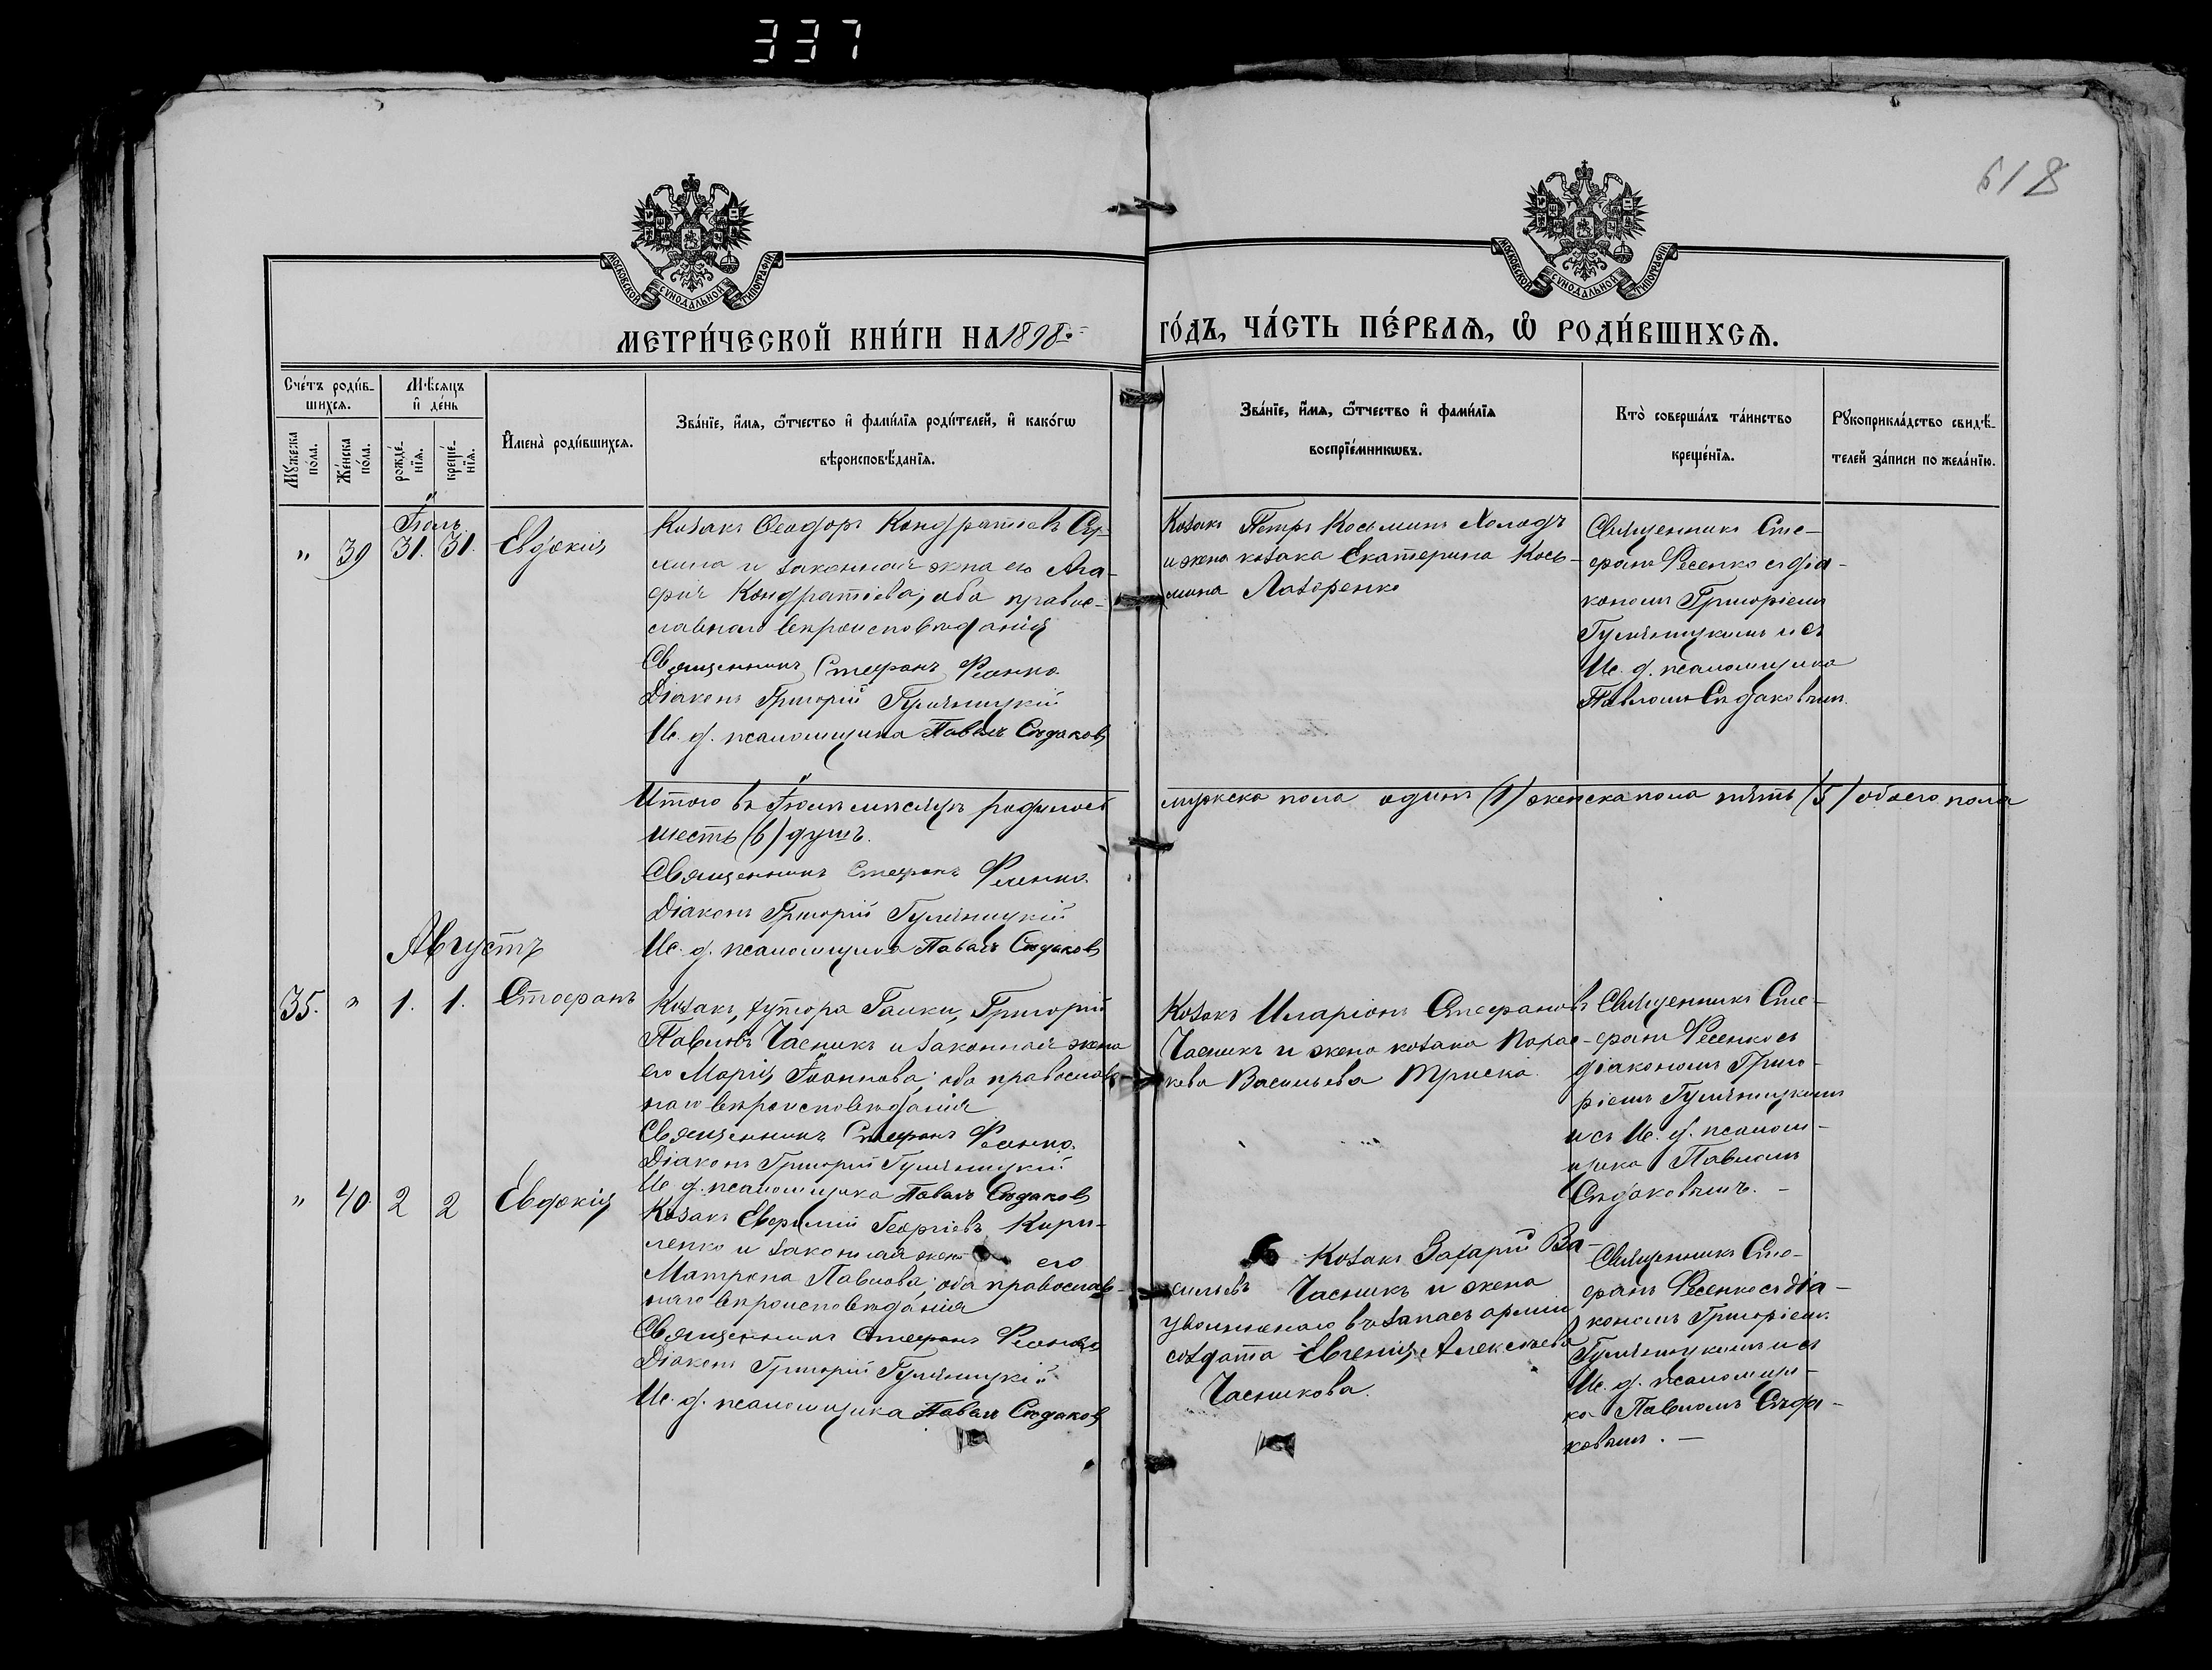 337
618
МОСКОВСКОЙ СѴНОДАЛЬНОЙ ТИПОГРАФІИ
МОСКОВСКОЙ СѴНОДАЛЬНОЙ ТИПОГРАФІИ
МЕТРИ́ЧЕСКОЙ КНИ́ГИ НА 1898
ГО́ДЪ, ЧА́СТЬ ПЕ́РВАѦ, Ѡ҆ РОДИ́ВШИХСѦ.
Сче́тъ роди́в-
шихсѧ.
Мꙋ́жеска
по́ла.
Же́нска
по́ла.
Мѣ́сѧцъ
и҆ де́нь
рожде́-
нїѧ.
креще́-
нїѧ.
И҆мена̀ роди́вшихсѧ.
Зва́нїе, и҆́мѧ, ѻ҆́тчество и҆ фамѝлїѧ роди́телей, и҆ како́гѡ
вѣроисповѣ́данїѧ.
Зва́нїе, и҆́мѧ, ѻ҆́тчество и҆ фамѝлїѧ
воспрїе́мникѡвъ.
Кто̀ соверша́лъ та́инство
креще́нїѧ.
Рꙋкоприкла́дство свидѣ́-
телей за́писи по жела́нїю.
Іюль
" 39 31. 31. Евдокія
Козакъ Ѳеодоръ Кондратіевъ
и законная жена его Ага-
фія Кондратіева, оба право-
славнаго вѣроисповѣданія
Священникъ Стефанъ Фесенко
Діаконъ Григорій Гуляницкій
Ис. д. псаломщика Павелъ Сѣдаковъ
Козакъ Петръ Косьминъ Холодъ
и жена козака Екатерина Кось-
мина Лазоренко
Священникъ Сте-
фанъ Фесенко съ діа-
кономъ Григоріемъ
Гуляницкимъ и съ
Ис. д. псаломщика
Павломъ Сѣдаковымъ.
Итого въ Іюлѣ мѣсяцѣ родилось
мужеска пола одинъ (1) женска пола пять (5) обоего пола
шесть (6) душъ.
Священникъ Стефанъ Фесенко
Діаконъ Григорій Гуляницкій
Ис. д. псаломщика Павелъ Сѣдаковъ
Августъ
35. " 1. 1. Стефанъ
Козакъ, хутора Гайки, Григорій
Павловъ Часникъ и законная жена
его Марія Іоаннова; оба православ-
наго вѣроисповѣданія
Священникъ Стефанъ Фесенко
Діаконъ Григорій Гуляницкій
Ис. д. псаломщика Павелъ Сѣдаковъ
Козакъ Иларіонъ Стефановъ
Часникъ и жена козака Парас-
кева Васильева Триска.
Священникъ Сте-
фанъ Фесенко съ
діакономъ Григо-
ріемъ Гуляницкимъ
и съ Ис. д. псалом-
щика Павломъ
Сѣдаковымъ. -
" 40 2 2 Евдокія
Козакъ Евфимій Георгіевъ Кири-
ленко и законная жена его
Матрона Павлова; оба православ-
наго вѣроисповѣданія
Священникъ Стефанъ Фесенко
Діаконъ Григорій Гуляницкій
Ис. д. псаломщика Павелъ Сѣдаковъ
Козакъ Захарій Ва-
сильевъ Часникъ и жена
уволеннаго въ запасъ арміи
солдата Евгенія Алексѣева
Часникова.
Священникъ Сте-
фанъ Фесенко съ діа-
кономъ Григоріемъ
Гуляницкимъ и съ
Ис. д. псаломщи-
ка Павломъ Сѣда-
ковымъ. -